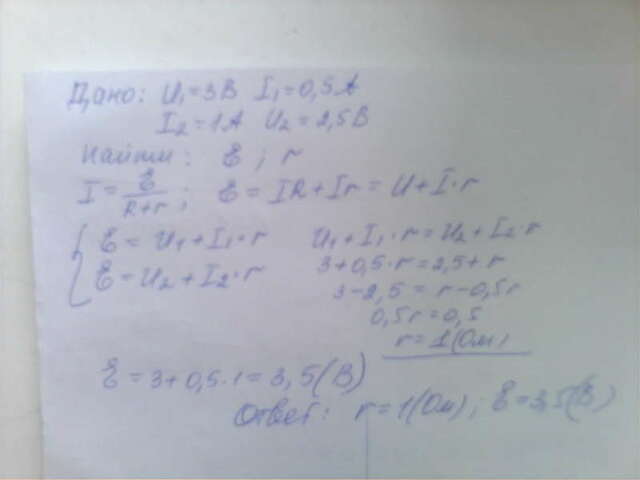 Дано: U₁=3В I₁=0,5А
I₂=1А U₂=2,5В
Найти: Ɛ; r
I = Ɛ/(R+r); Ɛ = IR+Ir = U+I·r
{ Ɛ = U₁+I₁·r
Ɛ = U₂+I₂·r
U₁+I₁·r=U₂+I₂·r
3+0,5·r=2,5+r
3-2,5=r-0,5r
0,5r=0,5
r=1(Ом)
Ɛ=3+0,5·1=3,5(В)
Ответ: r=1(Ом); Ɛ=3,5(В)